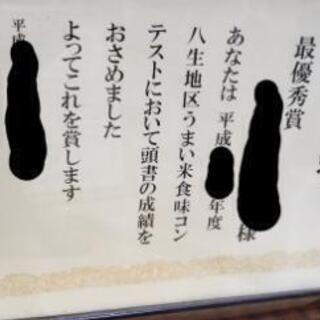 最優秀賞
様
あなたは 平成 年度
八生地区うまい米食味コン
テストにおいて頭書の成績を
おさめました
よってこれを賞します
平成